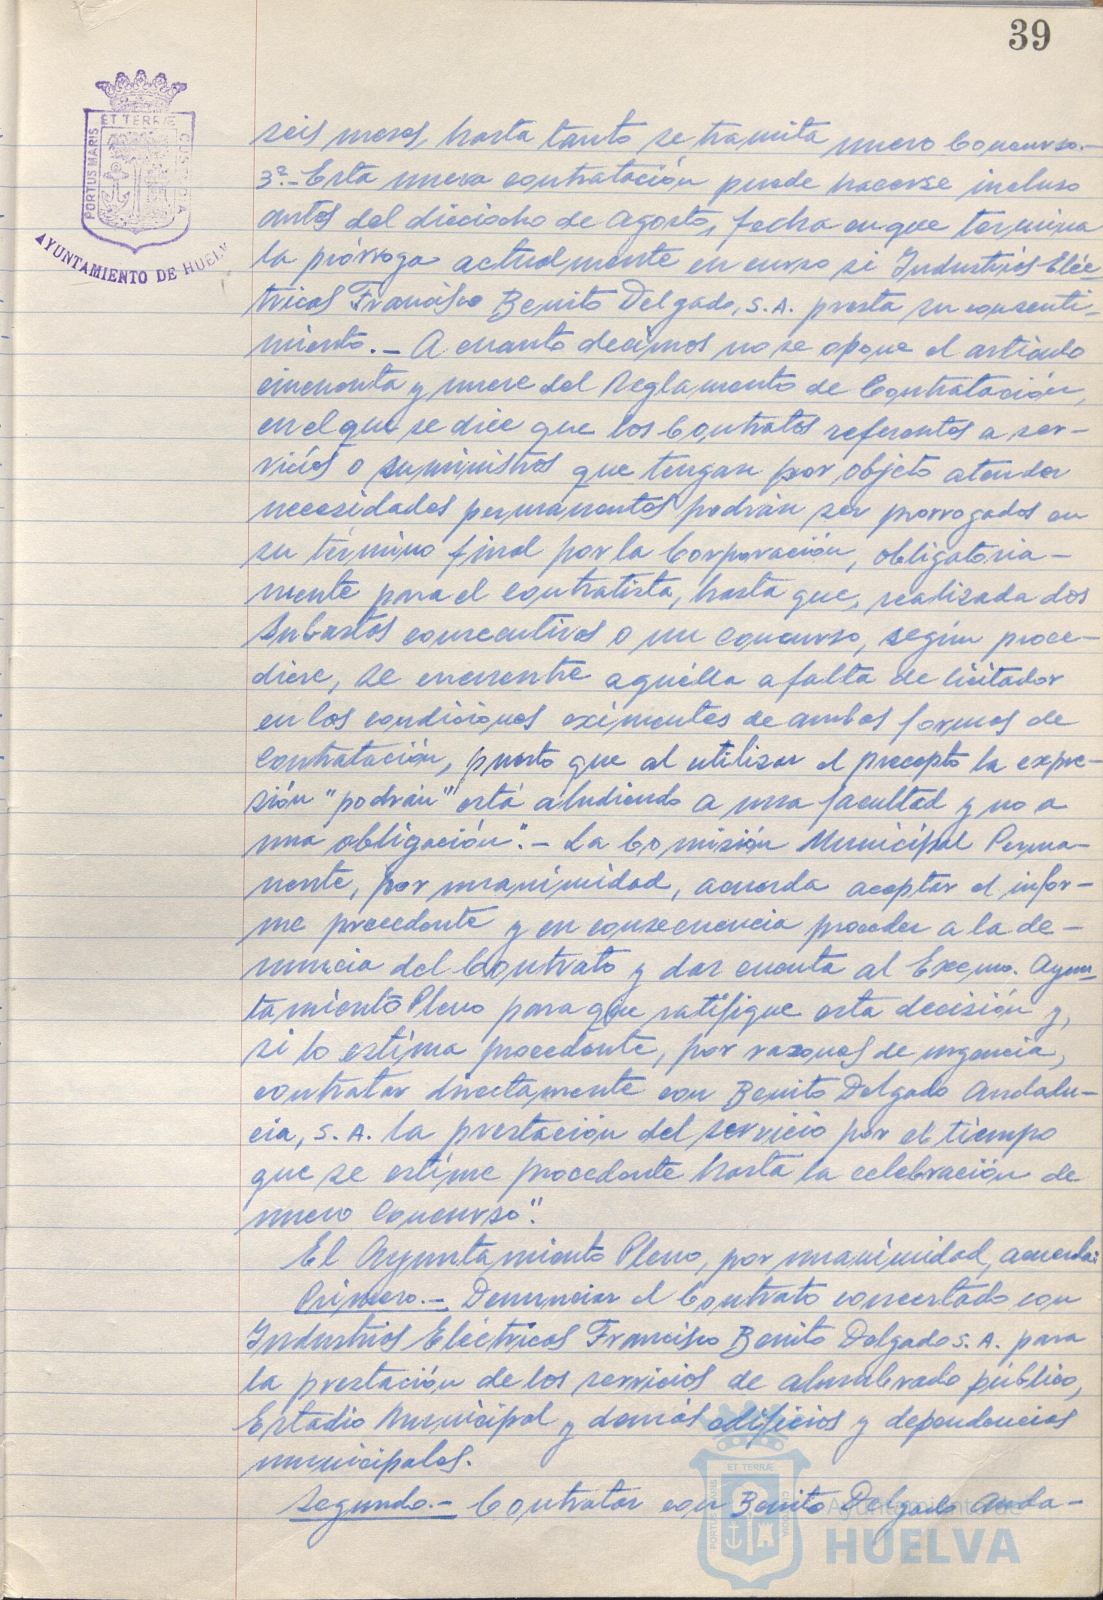 39
ET TERRÆ
PORTUS MARIS
CUSTODIA
AYUNTAMIENTO DE HUELV
seis meses, hasta tanto se tramita nuevo Concurso.-
3º.- Esta nueva contratación puede hacerse incluso
antes del dieciocho de agosto, fecha en que termina
la prórroga actualmente en curso si Industrias Eléc
tricas Francisco Benito Delgado, S.A. presta su consenti-
miento.- A cuanto decimos no se opone el artículo
cincuenta y nueve del Reglamento de Contratación,
en el que se dice que los Contratos referentes a ser-
vicios o suministros que tengan por objeto atender
necesidades permanentes podrán ser prorrogados en
su término final por la Corporación, obligatoria-
mente para el contratista, hasta que, realizada dos
Subastas consecutivas o un concurso, según proce-
diere, se encuentre aquélla a falta de licitador
en las condiciones eximentes de ambas formas de
Contratación, puesto que al utilizar el precepto la expre-
sión "podrán" está aludiendo a una facultad y no a
una obligación".- La Comisión Municipal Perma-
nente, por unanimidad, acuerda aceptar el infor-
me precedente y en consecuencia proceder a la de-
nuncia del Contrato y dar cuenta al Excmo. Ayun-
tamiento Pleno para que ratifique esta decisión y,
si lo estima procedente, por razones de urgencia,
contratar directamente con Benito Delgado Andalu-
cia, S.A. la prestación del servicio por el tiempo
que se estime procedente hasta la celebración de
nuevo Concurso".
El Ayuntamiento Pleno, por unanimidad, acuerda:
Primero.- Denunciar el Contrato concertado con
Industrias Eléctricas Francisco Benito Delgado S.A. para
la prestación de los servicios de alumbrado público,
Estadio Municipal y demás edificios y dependencias
municipales.
Segundo.- Contratar con Benito Delgado Anda-
ET TERRÆ
PORTUS MARIS
CUSTODIA
Ayuntamiento de
HUELVA